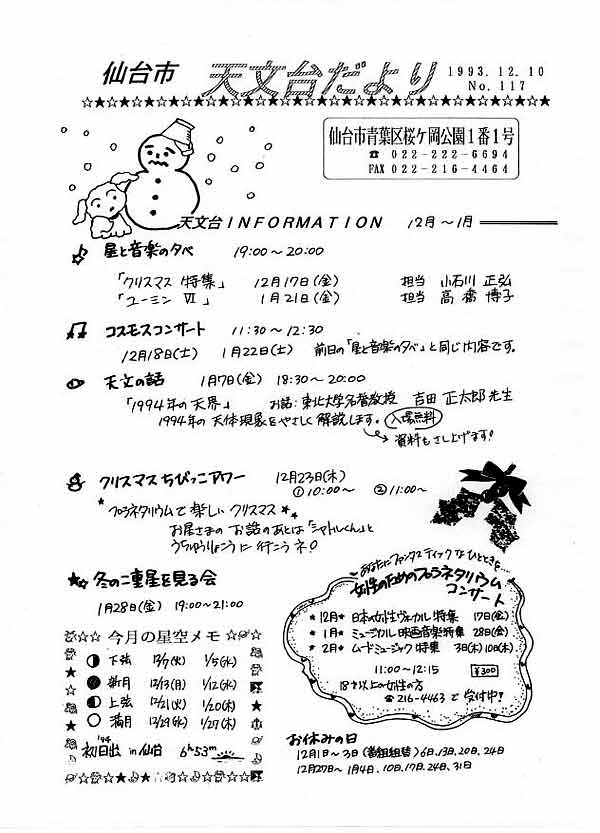 仙台市 天文台だより 1993.12.10
No. 117
仙台市青葉区桜ケ岡公園1番1号
☎ 022-222-6694
FAX 022-216-4464
天文台INFORMATION 12月～1月
星と音楽の夕べ 19:00～20:00
「クリスマス特集」 12月17日(金) 担当 小石川 正弘
「ユーミン Ⅵ」 1月21日(金) 担当 高橋 博子
コスモスコンサート 11:30～12:30
12月18日(土) 1月22日(土) 前日の「星と音楽の夕べ」と同じ内容です。
天文の話 1月7日(金) 18:30～20:00
「1994年の天界」 お話:東北大学名誉教授 吉田 正太郎 先生
1994年の天体現象をやさしく解説します。 入場無料
資料もさし上げます!
クリスマスちびっこアワー 12月23日(木)
①10:00～ ②11:00～
プラネタリウムで楽しいクリスマス
お星さまのお話のあとは「シャトルくん」と
うちゅうりょこうに行こうネ!
冬の二重星を見る会
1月28日(金) 19:00～21:00
今月の星空メモ
下弦 12/7(火) 1/5(水)
新月 12/13(月) 1/12(水)
上弦 12/21(火) 1/20(木)
満月 12/29(水) 1/27(木)
'94 初日出 in 仙台 6h53m
あなたにファンタスティックなひとときを…
女性のためのプラネタリウム
コンサート
★12月★ 日本の女性ヴォーカル特集 17日(金)
★1月★ ミュージカル映画音楽特集 28日(金)
★2月★ ムードミュージック特集 3日(木)10日(木)
11:00～12:15 ¥300
18才以上の女性の方
☎216-4463で受付中!
お休みの日
12月1日～3日(番組組替)6日,13日,20日,24日
12月27日～1月4日,10日,17日,24日,31日